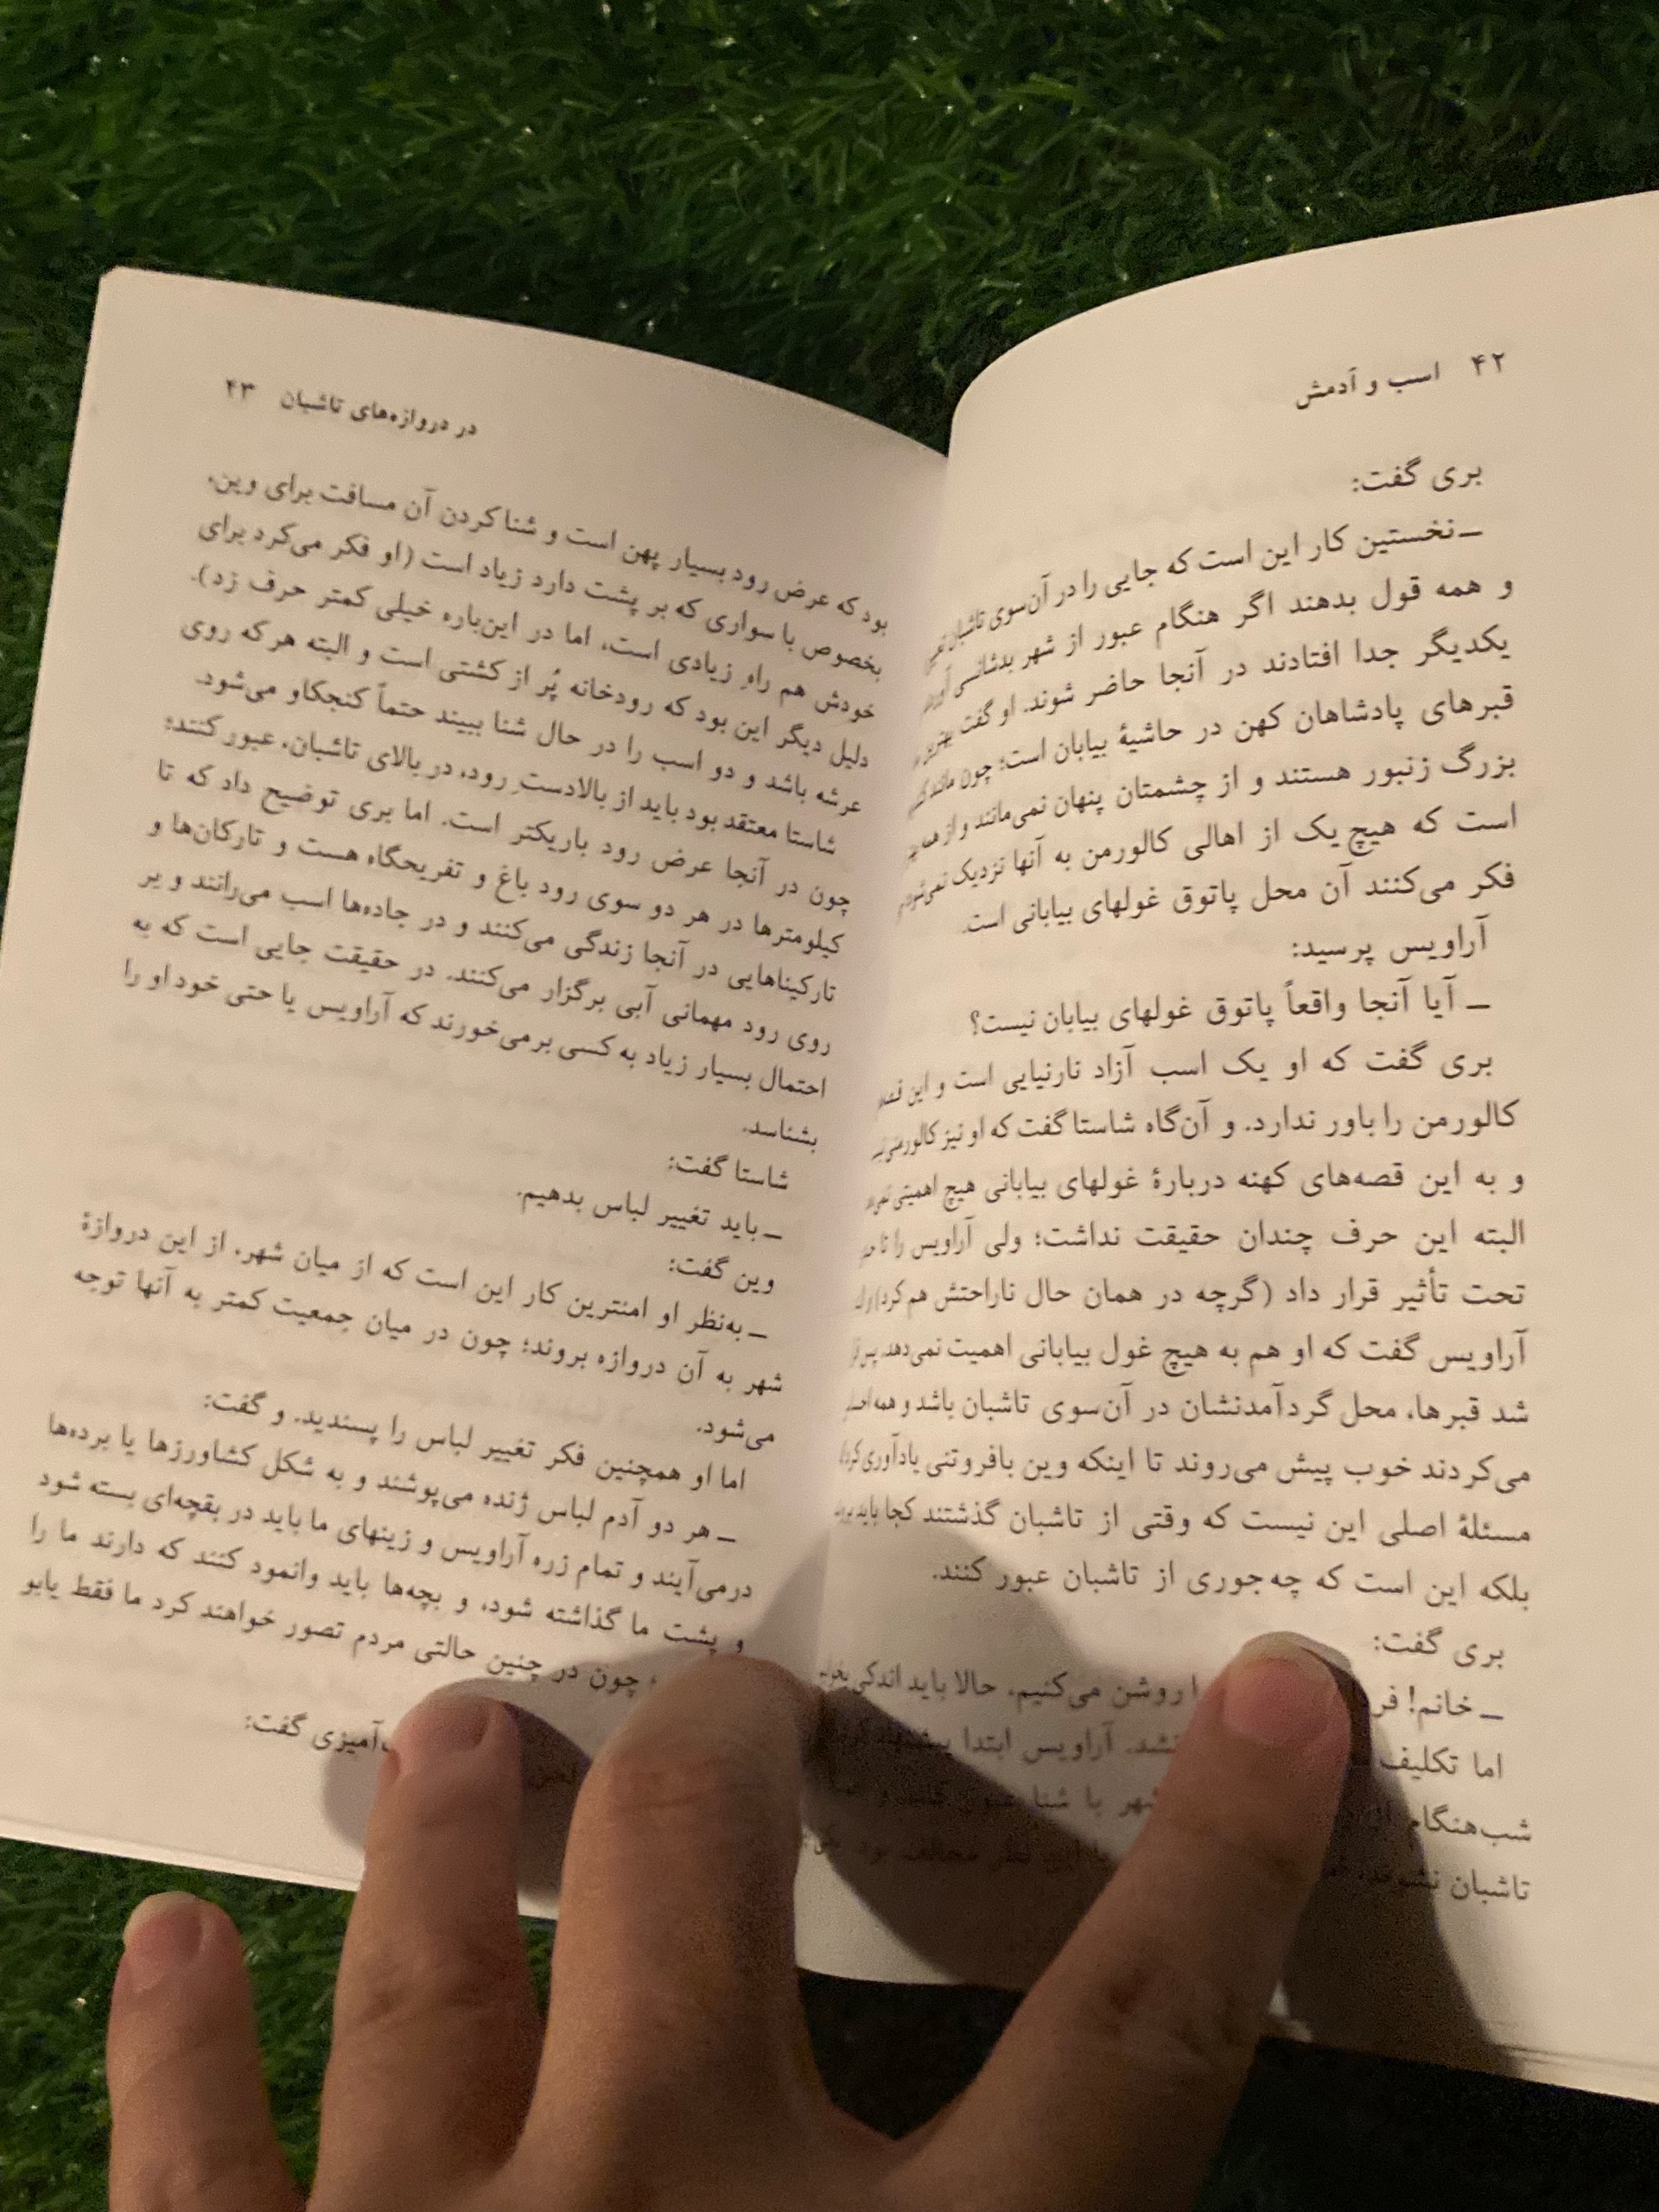 ۴۲ اسب و آدمش
بری گفت:
ــ نخستین کار این است که جایی را در آن‌سوی تاشبان
و همه قول بدهند اگر هنگام عبور از شهر بدشانسی
یکدیگر جدا افتادند در آنجا حاضر شوند. او گفت بهترین
قبرهای پادشاهان کهن در حاشیهٔ بیابان است؛ چون مانند
بزرگ زنبور هستند و از چشمتان پنهان نمی‌مانند و از همه
است که هیچ یک از اهالی کالورمن به آنها نزدیک
فکر می‌کنند آن محل پاتوق غولهای بیابانی است.
آراویس پرسید:
ــ آیا آنجا واقعاً پاتوق غولهای بیابان نیست؟
بری گفت که او یک اسب آزاد نارنیایی است و این
کالورمن را باور ندارد. و آن‌گاه شاستا گفت که او نیز کالورمنی
و به این قصه‌های کهنه دربارهٔ غولهای بیابانی هیچ اهمیتی
البته این حرف چندان حقیقت نداشت؛ ولی آراویس را تا
تحت تأثیر قرار داد (گرچه در همان حال ناراحتش هم کرد)
آراویس گفت که او هم به هیچ غول بیابانی اهمیت نمی‌دهد.
شد قبرها، محل گردآمدنشان در آن‌سوی تاشبان باشد و همه
می‌کردند خوب پیش می‌روند تا اینکه وین بافروتنی یادآوری
مسئلهٔ اصلی این نیست که وقتی از تاشبان گذشتند کجا باید
بلکه این است که چه‌جوری از تاشبان عبور کنند.
بری گفت:
ــ خانم! روشن می‌کنیم. حالا باید اندکی
اما تکلیف نشد. آراویس ابتدا
شب‌هنگام شهر با شنا
تاشبان نشوند، این نظر مخالف بود.
در دروازه‌های تاشبان ۴۳
بود که عرض رود بسیار پهن است و شنا کردن آن مسافت برای وین،
بخصوص با سواری که بر پشت دارد زیاد است (او فکر می‌کرد برای
خودش هم راهِ زیادی است، اما در این‌باره خیلی کمتر حرف زد).
دلیل دیگر این بود که رودخانه پُر از کشتی است و البته هر که روی
عرشه باشد و دو اسب را در حال شنا ببیند حتماً کنجکاو می‌شود.
شاستا معتقد بود باید از بالادستِ رود، در بالای تاشبان، عبور کنند؛
چون در آنجا عرض رود باریکتر است. اما بری توضیح داد که تا
کیلومترها در هر دو سوی رود باغ و تفریحگاه هست و تارکان‌ها و
تارکیناهایی در آنجا زندگی می‌کنند و در جاده‌ها اسب می‌رانند و بر
روی رود مهمانی آبی برگزار می‌کنند. در حقیقت جایی است که به
احتمال بسیار زیاد به کسی برمی‌خورند که آراویس یا حتی خود او را
بشناسد.
شاستا گفت:
ــ باید تغییر لباس بدهیم.
وین گفت:
ــ به‌نظر او امنترین کار این است که از میان شهر، از این دروازهٔ
شهر به آن دروازه بروند؛ چون در میان جمعیت کمتر به آنها توجه
می‌شود.
اما او همچنین فکر تغییر لباس را پسندید. و گفت:
ــ هر دو آدم لباس ژنده می‌پوشند و به شکل کشاورزها یا برده‌ها
درمی‌آیند و تمام زره آراویس و زینهای ما باید در بقچه‌ای بسته شود
و پشت ما گذاشته شود، و بچه‌ها باید وانمود کنند که دارند ما را
چون در چنین حالتی مردم تصور خواهند کرد ما فقط یابو
آمیزی گفت: